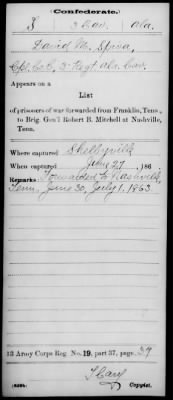 Confederate.
S 3 Cav. Ala.
David M.
Cpl. Co. 3 Regt. Ala. Cav.
Appears on a
List
of prisoners of war forwarded from Franklin, Tenn.,
to Brig. Gen'l Robert B. Mitchell at Nashville,
Tenn.
Where captured Shelbyville
When captured June 27, 186
Remarks: Forwarded to Nashville,
Tenn. June 30, July 1. 1863.
13 Army Corps Reg. No. 19, part 37, page 29
Copyist.